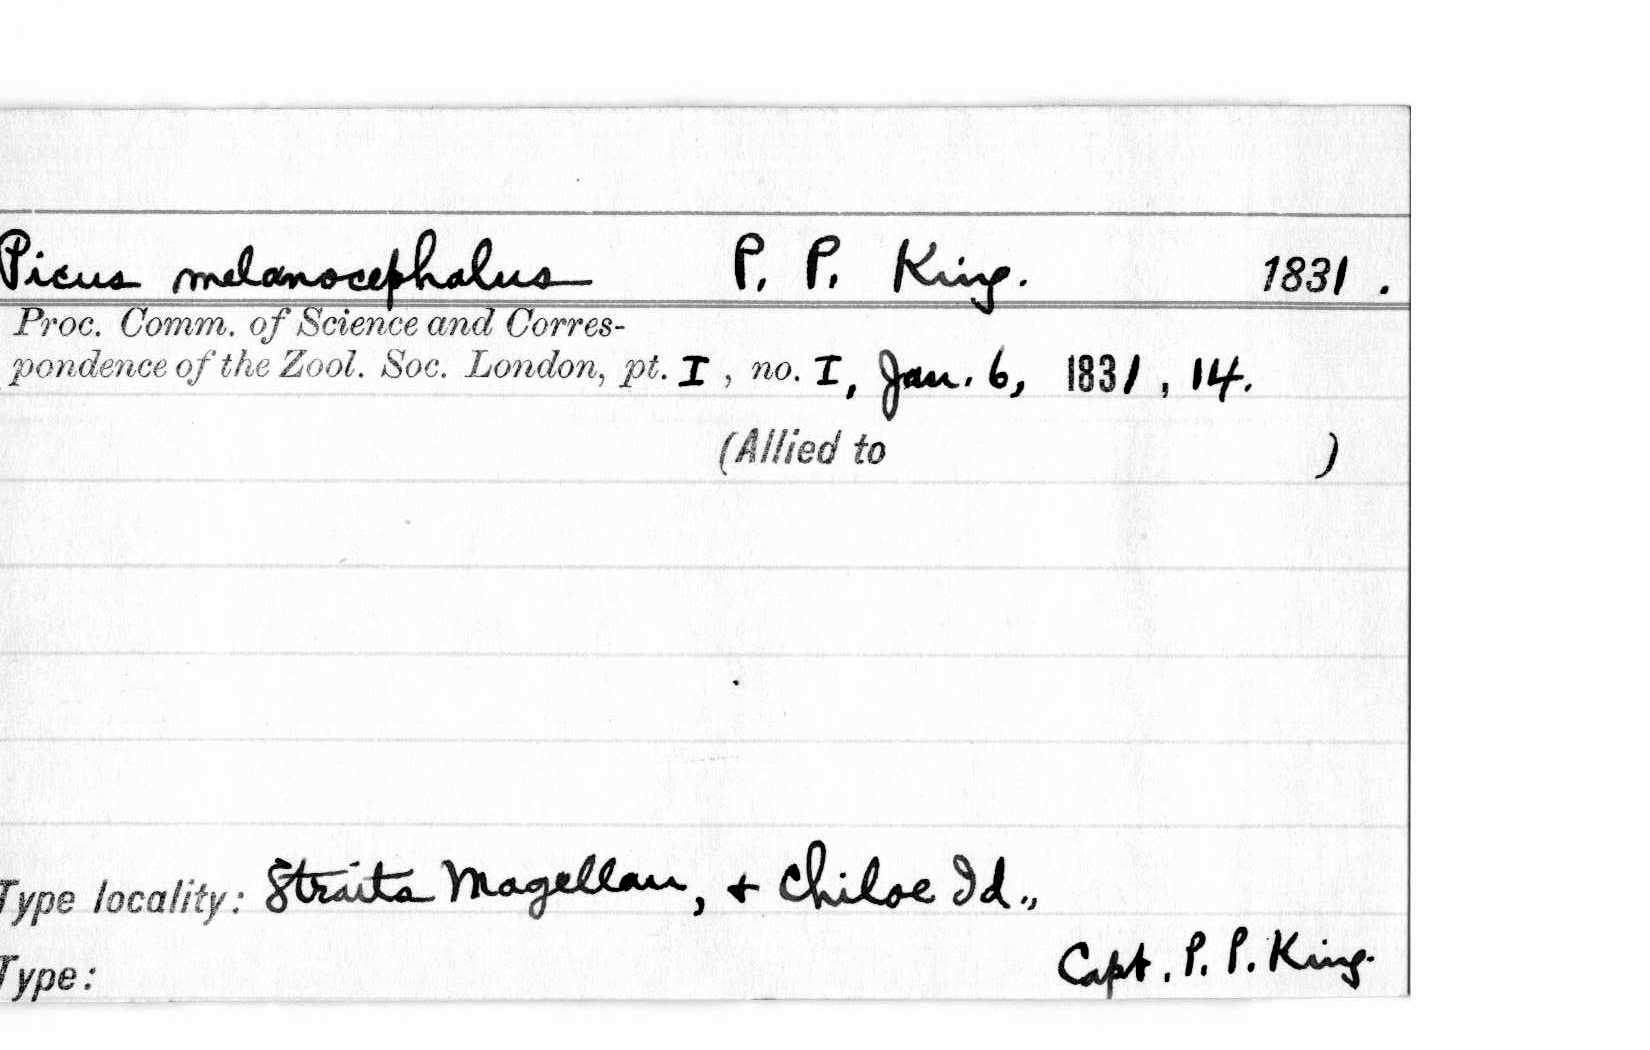 Picus melanocephalus P. P. King. 1831.
Proc. Comm. of Science and Corres-
pondence of the Zool. Soc. London, pt. I, no. I, Jan. 6, 1831, 14.
(Allied to )
Type locality: Straits Magellan, + Chiloe Id.,
Type: Capt. P. P. King.